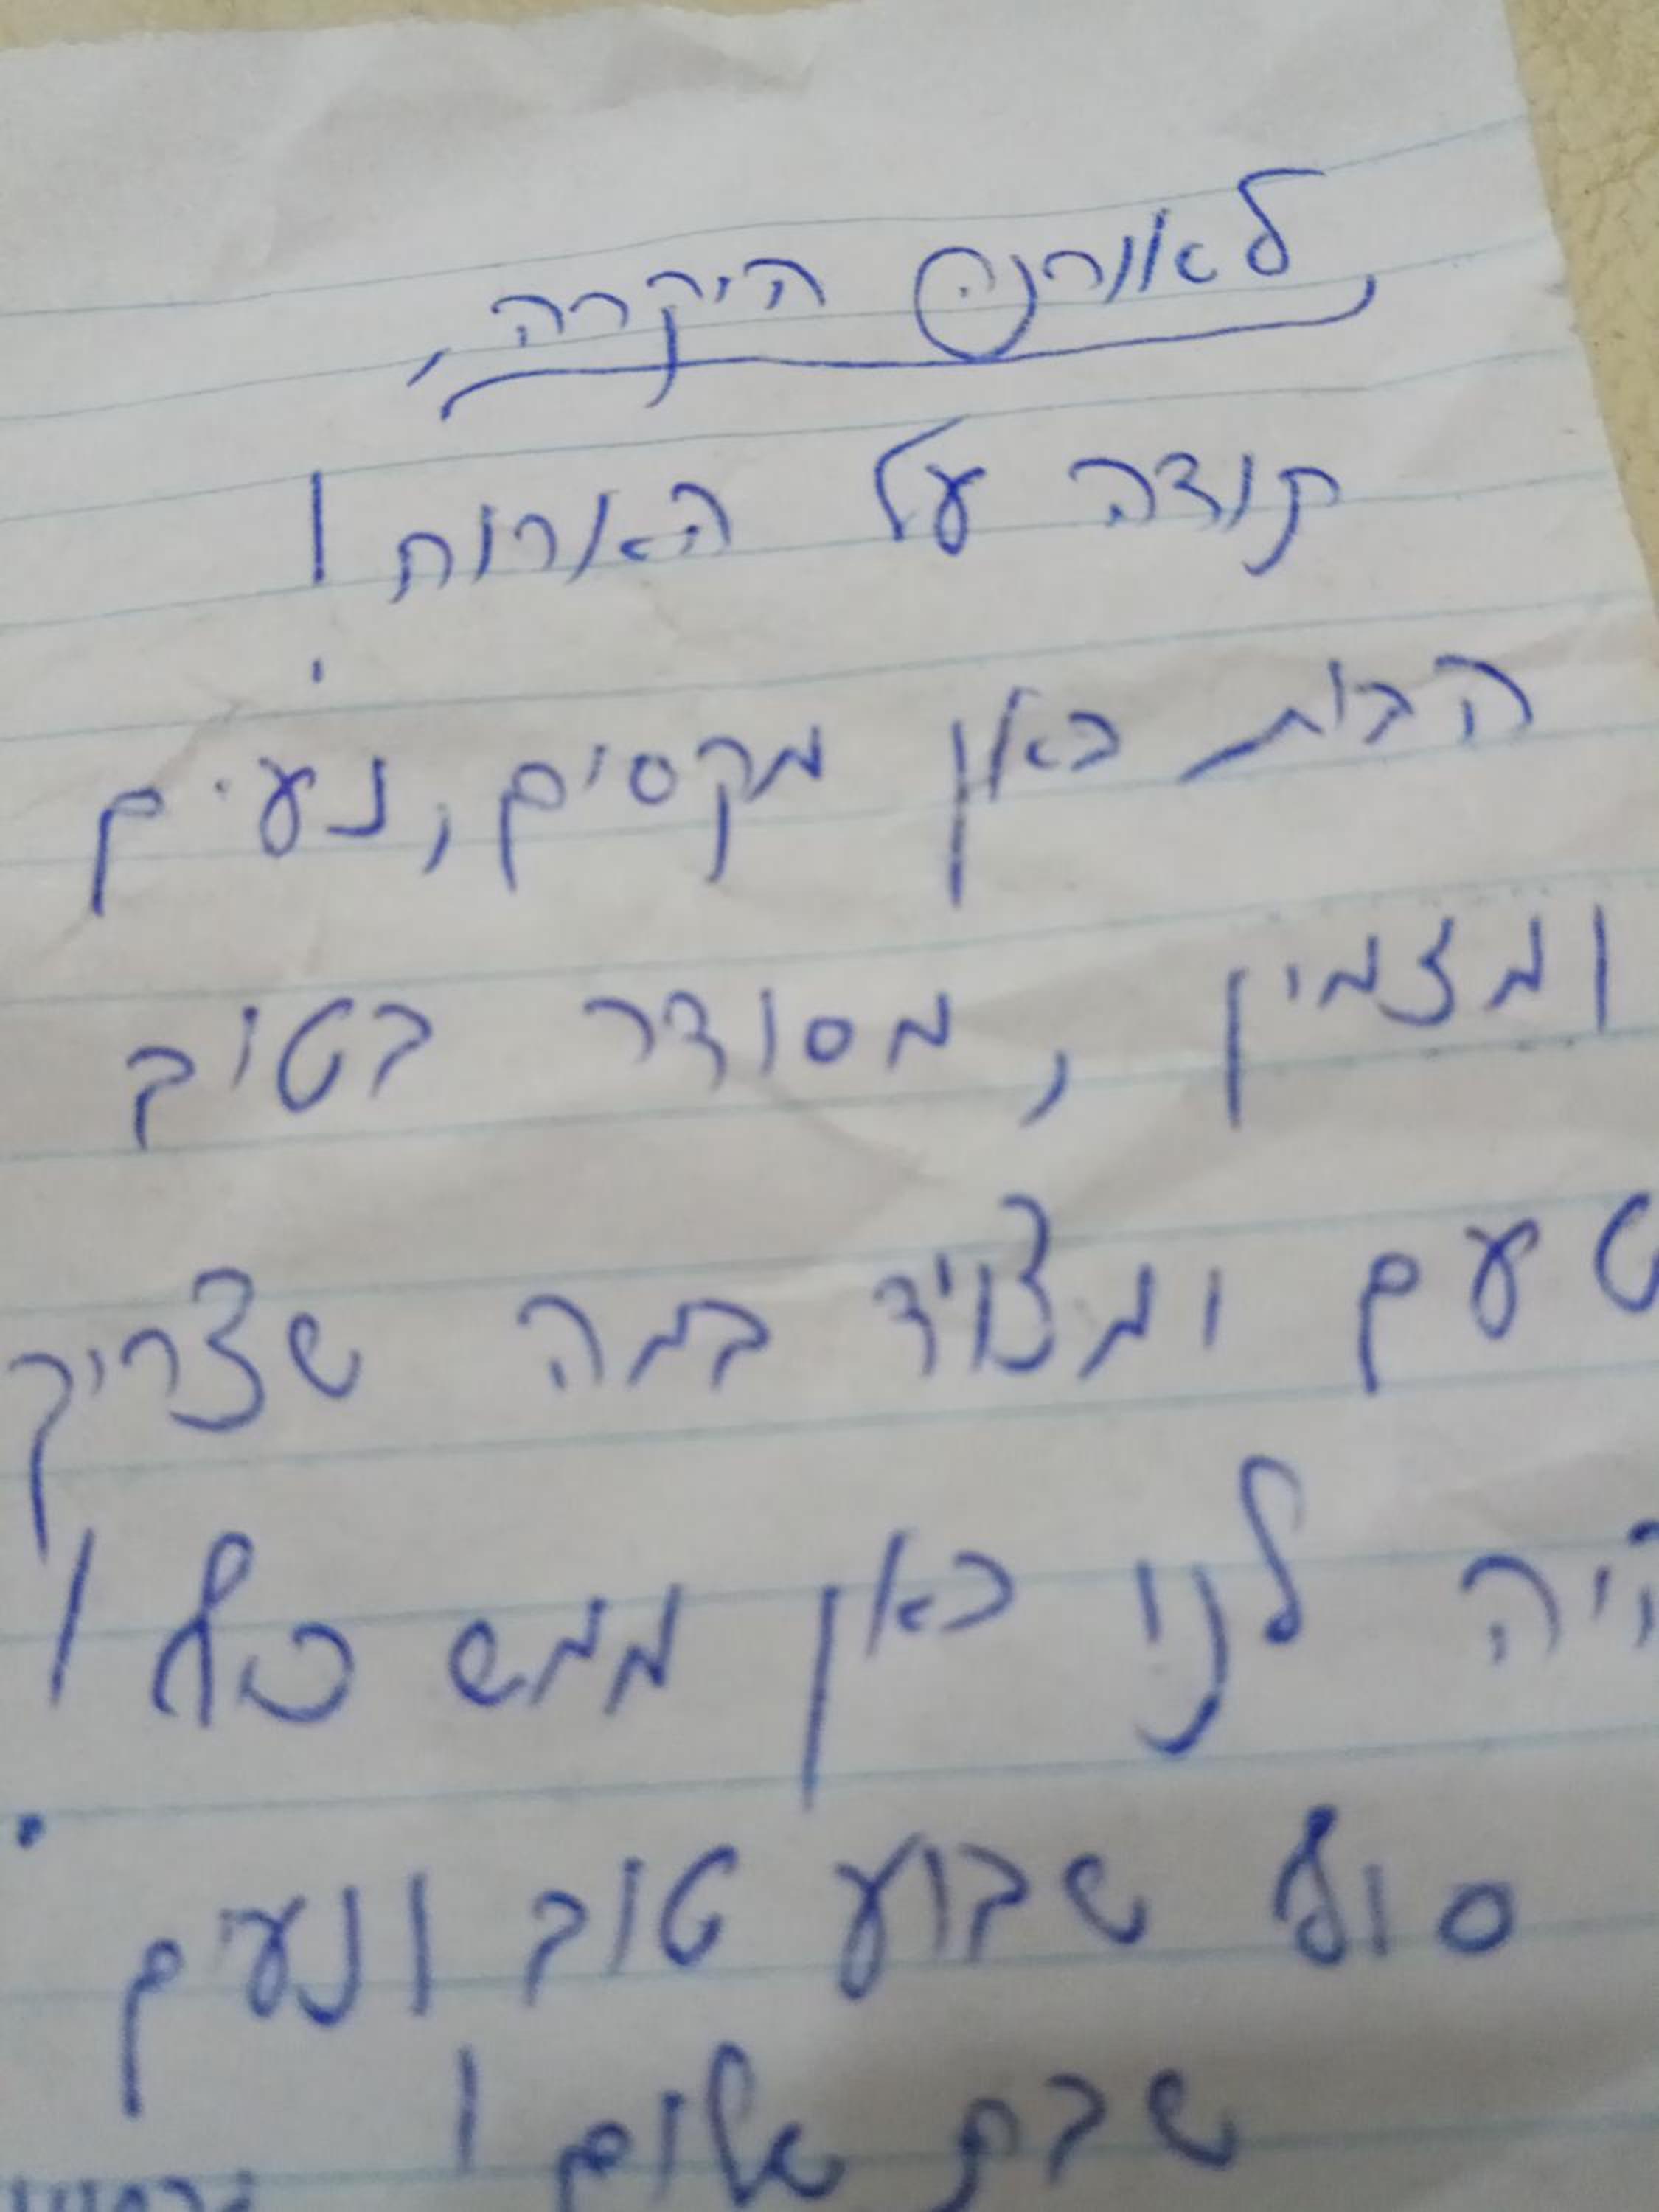 לאורנה היקרה,
תודה על האירוח!
הבית כאן מקסים, נעים
ומזמין, מסודר בטוב
טעם ומצויד במה שצריך
היה לנו כאן ממש כיף!
סוף שבוע טוב ונעים
שבת שלום!